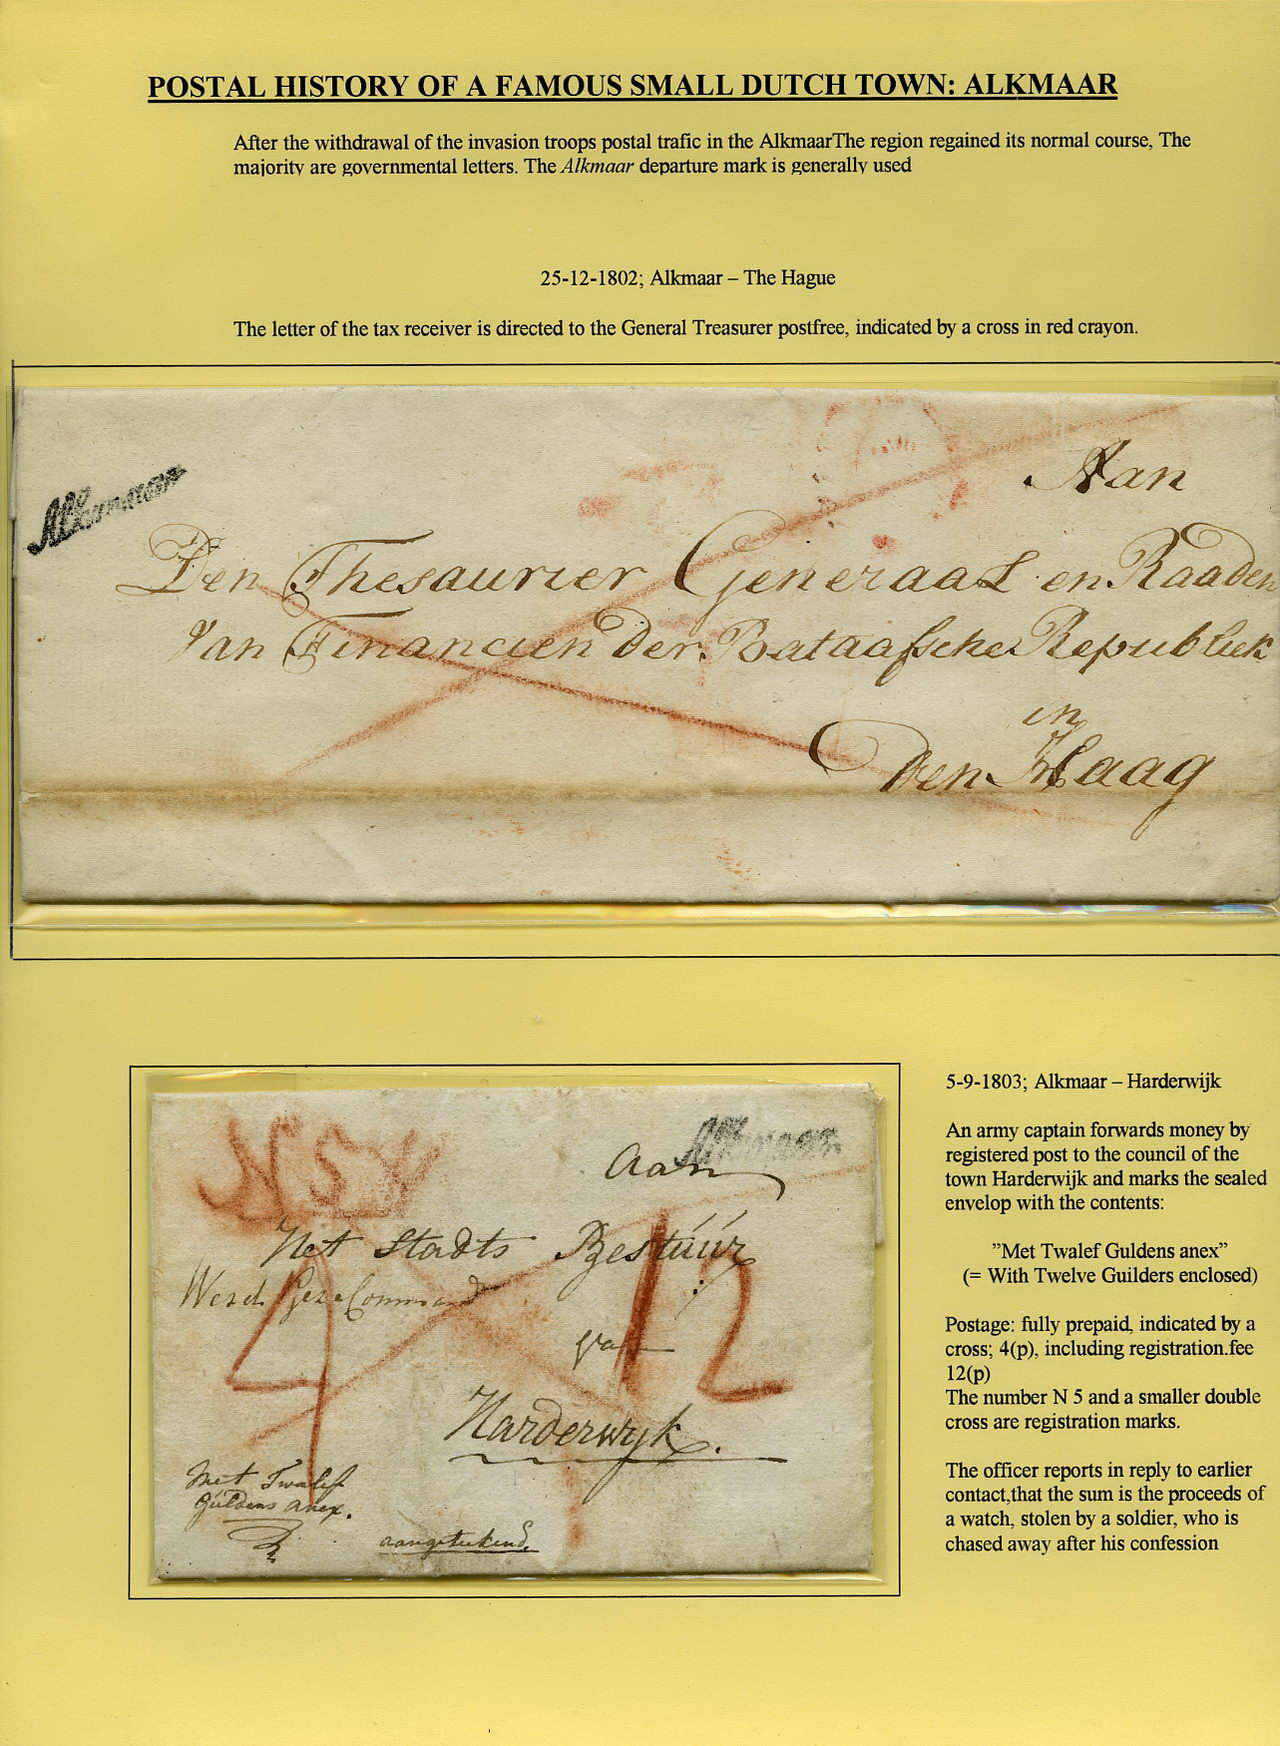 POSTAL HISTORY OF A FAMOUS SMALL DUTCH TOWN: ALKMAAR
After the withdrawal of the invasion troops postal trafic in the AlkmaarThe region regained its normal course, The
majority are governmental letters. The Alkmaar departure mark is generally used
25-12-1802; Alkmaar – The Hague
The letter of the tax receiver is directed to the General Treasurer postfree, indicated by a cross in red crayon.
Alkmaar
Aan
Den Thesaurier Generaal en Raaden
Van Financien Der Bataafsche Republiek
in
Den Haag
N 5
Alkmaar
Aan
Het Stadts Bestúúr
4
12
van
Harderwyk.
Met Twalef
Guldens anex.
aangetekend
5-9-1803; Alkmaar – Harderwijk
An army captain forwards money by
registered post to the council of the
town Harderwijk and marks the sealed
envelop with the contents:
”Met Twalef Guldens anex”
(= With Twelve Guilders enclosed)
Postage: fully prepaid, indicated by a
cross; 4(p), including registration.fee
12(p)
The number N 5 and a smaller double
cross are registration marks.
The officer reports in reply to earlier
contact,that the sum is the proceeds of
a watch, stolen by a soldier, who is
chased away after his confession